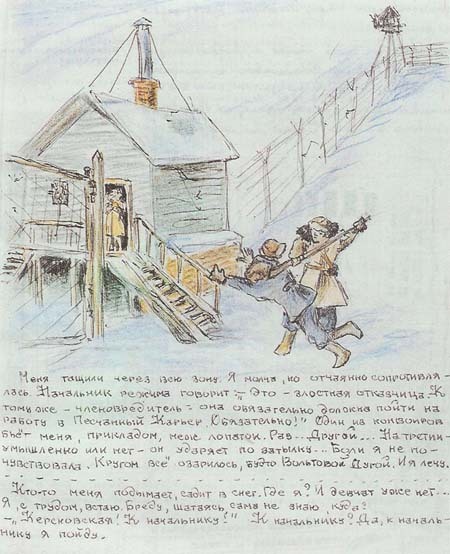 Меня тащили через всю зону. Я молча, но отчаянно сопротивля-
лась. Начальник режима говорит: „Это - злостная отказчица. К
тому же - членовредитель - она обязательно должна пойти на
работу в Песчанный Карьер. Обязательно!" Один из конвоиров
бьёт меня, прикладом, меж лопаток. Раз... Другой... На третий
умышленно или нет - он ударяет по затылку... Боли я не по-
чувствовала. Кругом всё озарилось, будто Вольтовой Дугой. И я лечу.
Кто-то меня подымает, садит в снег. Где я? И девчат уже нет...
Я, с трудом, встаю. Бреду, шатаясь, сама не знаю, куда?
- „Керсновская! К начальнику!" К начальнику? Да, к началь-
нику я пойду.